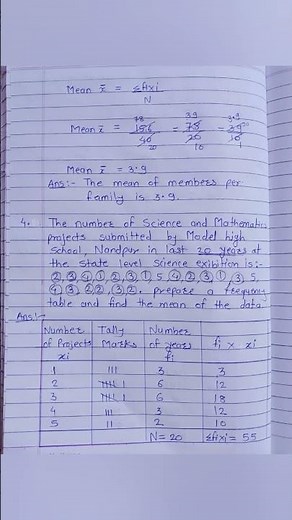 Mean x̄ = Σfixi
N
Mean x̄ = 78 156 / 40 20 = 39 78 / 20 10 = 39 / 10
Mean x̄ = 3.9
Ans:- The mean of members per
family is 3.9.
4. The number of Science and Mathematics
projects submitted by Model high
School, Nandpur in last 20 years at
the State level Science exibition is:-
2, 3, 4, 1, 2, 3, 1, 5, 4, 2, 3, 1, 3, 5,
4, 3, 2, 2, 3, 2. prepare a frequency
table and find the mean of the data.
Ans:-
Number of Projects xi | Tally Marks | Number of years fi | fi × xi
1 | III | 3 | 3
2 | 𝍸 I | 6 | 12
3 | 𝍸 I | 6 | 18
4 | III | 3 | 12
5 | II | 2 | 10
N = 20 | Σfixi = 55